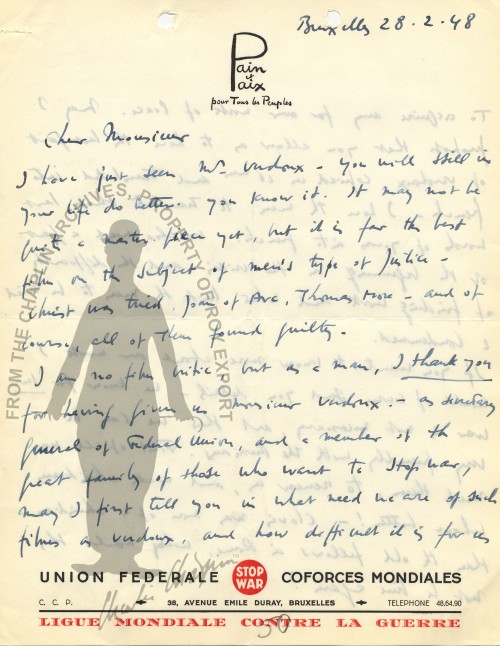 Bruxelles 28-2-48
Pain
et
Paix
pour Tous les Peuples
Cher Monsieur
I have just seen Mr. Verdoux - you will still in
your life do better. you know it. It may not be
quite a master piece yet, but it is far the best
film on the subject of men's type of Justice -
Christ was tried. Joan of Arc, Thomas More - and of
course, all of them found guilty.
I am no film critic but as a man, I thank you
for having given us Monsieur Verdoux. - as secretary
general of Federal Union, and a member of the
great family of those who want to stop war,
may I first tell you in what need we are of such
films as Verdoux, and how difficult it is for us
FROM THE CHAPLIN ARCHIVES, PROPERTY OF ROY EXPORT
UNION FEDERALE STOP WAR COFORCES MONDIALES
C. C. P. 38, AVENUE EMILE DURAY, BRUXELLES TELEPHONE 48.64.90
LIGUE MONDIALE CONTRE LA GUERRE
Charlie Chaplin
50